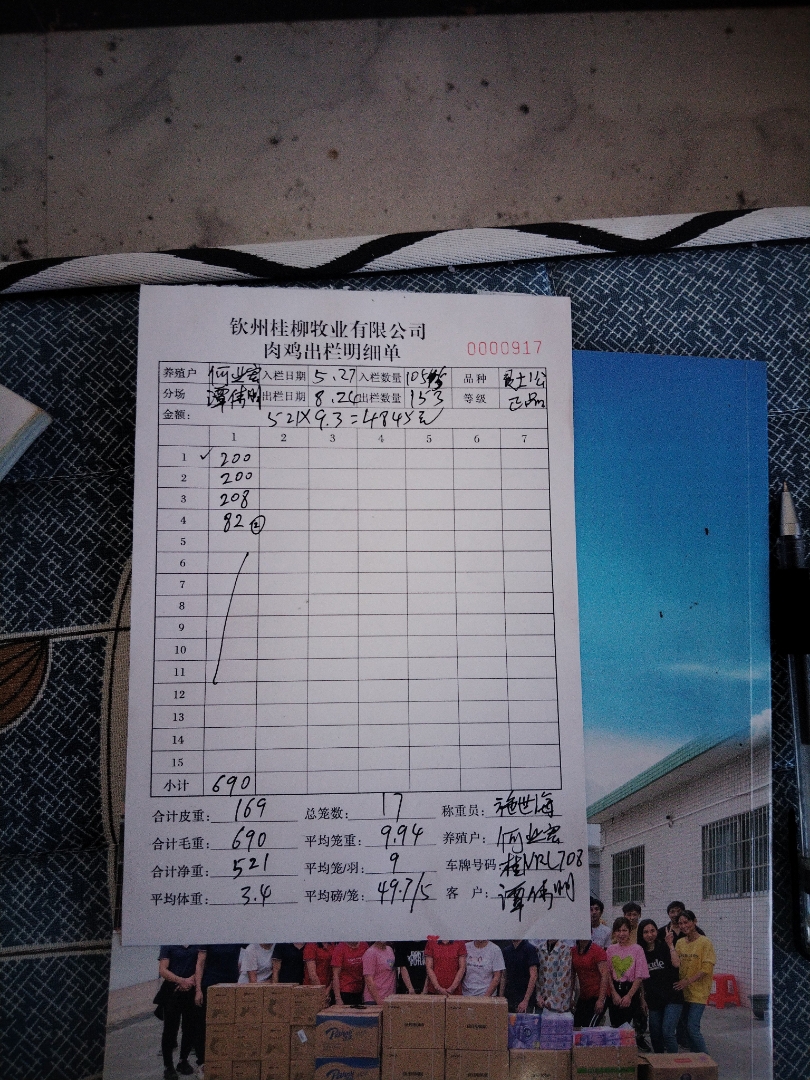 钦州桂柳牧业有限公司
肉鸡出栏明细单
0000917
养殖户 何业宏 入栏日期 5.27 入栏数量 品种
分场 谭伟明 出栏日期 8.26 出栏数量 153 等级 正品
金额： 521×9.3=4845元
1 2 3 4 5 6 7
1 ✓ 200
2 200
3 208
4 82 ②
5
6
7
8
9
10
11
12
13
14
15
小计 690
合计皮重： 169 总笼数： 17 称重员： 施世海
合计毛重： 690 平均笼重： 9.94 养殖户： 何业宏
合计净重： 521 平均笼/羽： 9 车牌号码： 桂NRL708
平均体重： 3.4 平均磅/笼： 49.7/5 客户： 谭伟明